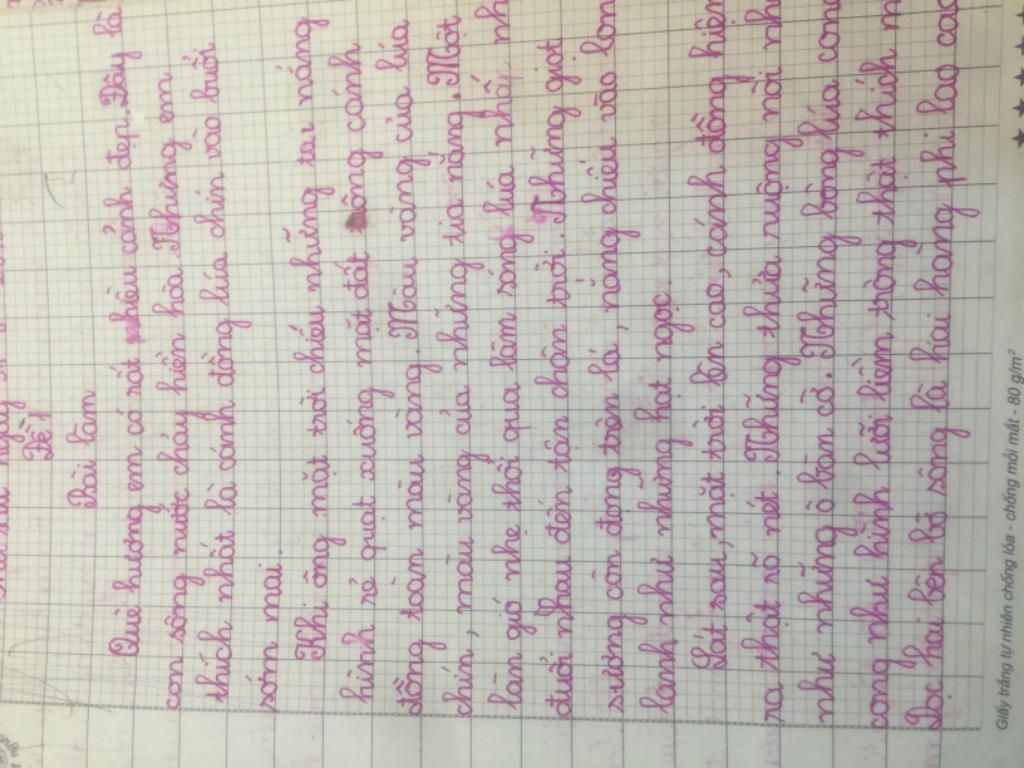 Đề 1
Bài làm
Quê hương em có rất nhiều cảnh đẹp. Đây là
con sông nước chảy hiền hòa. Nhưng em
thích nhất là cánh đồng lúa chín vào buổi
sớm mai.
Khi ông mặt trời chiếu những tia nắng
hình rẻ quạt xuống mặt đất đồng cánh
đồng toàn màu vàng. Màu vàng của lúa
chín, màu vàng của những tia nắng. Một
làn gió nhẹ thổi qua làm sóng lúa nhấp nh
đuổi nhau đến tận chân trời. Những giọt
sương còn đọng trên lá, nắng chiếu vào lon
lanh như những hạt ngọc.
Lát sau, mặt trời lên cao, cánh đồng hiện
ra thật rõ nét. Những thửa ruộng nối nh
như những ô bàn cờ. Những bông lúa con
cong như hình lưỡi liềm trông thật thích m
Dọc hai bên bờ sông là hai hàng phi lao cao
Giấy trắng tự nhiên chống lóa - chống mỏi mắt - 80 g/m²